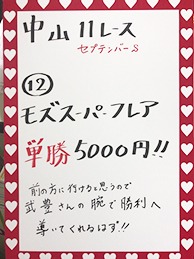 中山11レース
セプテンバーS
⑫
モズスーパーフレア
単勝5000円!!
前の方に行けると思うので
武豊さんの腕で勝利へ
導いてくれるはず!!